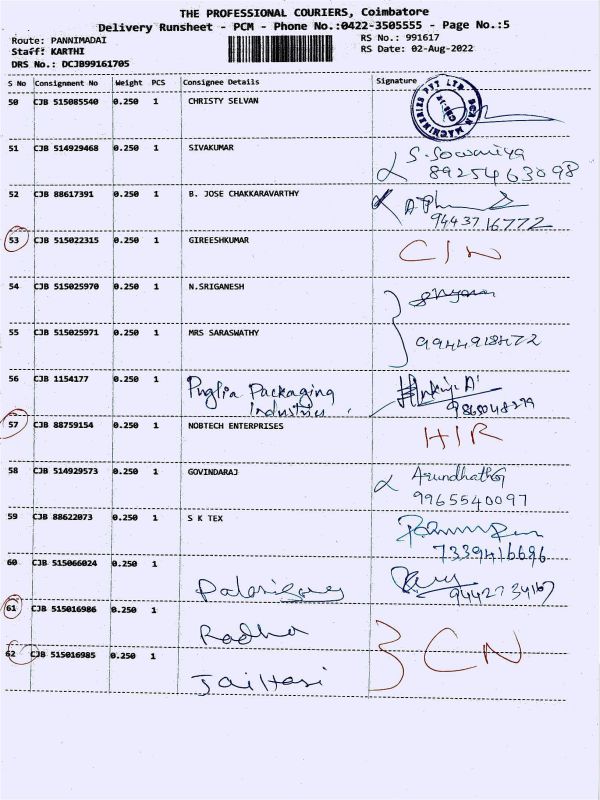 THE PROFESSIONAL COURIERS, Coimbatore
Delivery Runsheet - PCM - Phone No.:0422-3505555 - Page No.:5
Route: PANNIMADAI RS No.: 991617
Staff: KARTHI RS Date: 02-Aug-2022
DRS No.: DCJB99161705
S No Consignment No Weight PCS Consignee Details Signature
50 CJB 515085540 0.250 1 CHRISTY SELVAN
51 CJB 514929468 0.250 1 SIVAKUMAR S. Sowmiya
8925463098
52 CJB 88617391 0.250 1 B. JOSE CHAKKARAVARTHY
9443716772
53 CJB 515022315 0.250 1 GIREESHKUMAR
54 CJB 515025970 0.250 1 N.SRIGANESH
55 CJB 515025971 0.250 1 MRS SARASWATHY
56 CJB 1154177 0.250 1 Puglia Packaging
Industries
57 CJB 88759154 0.250 1 NOBTECH ENTERPRISES
58 CJB 514929573 0.250 1 GOVINDARAJ Arundhathi
9965540097
59 CJB 88622073 0.250 1 S K TEX
7339416696
60 CJB 515066024 0.250 1
61 CJB 515016986 0.250 1 Radha
62 CJB 515016985 0.250 1 CN